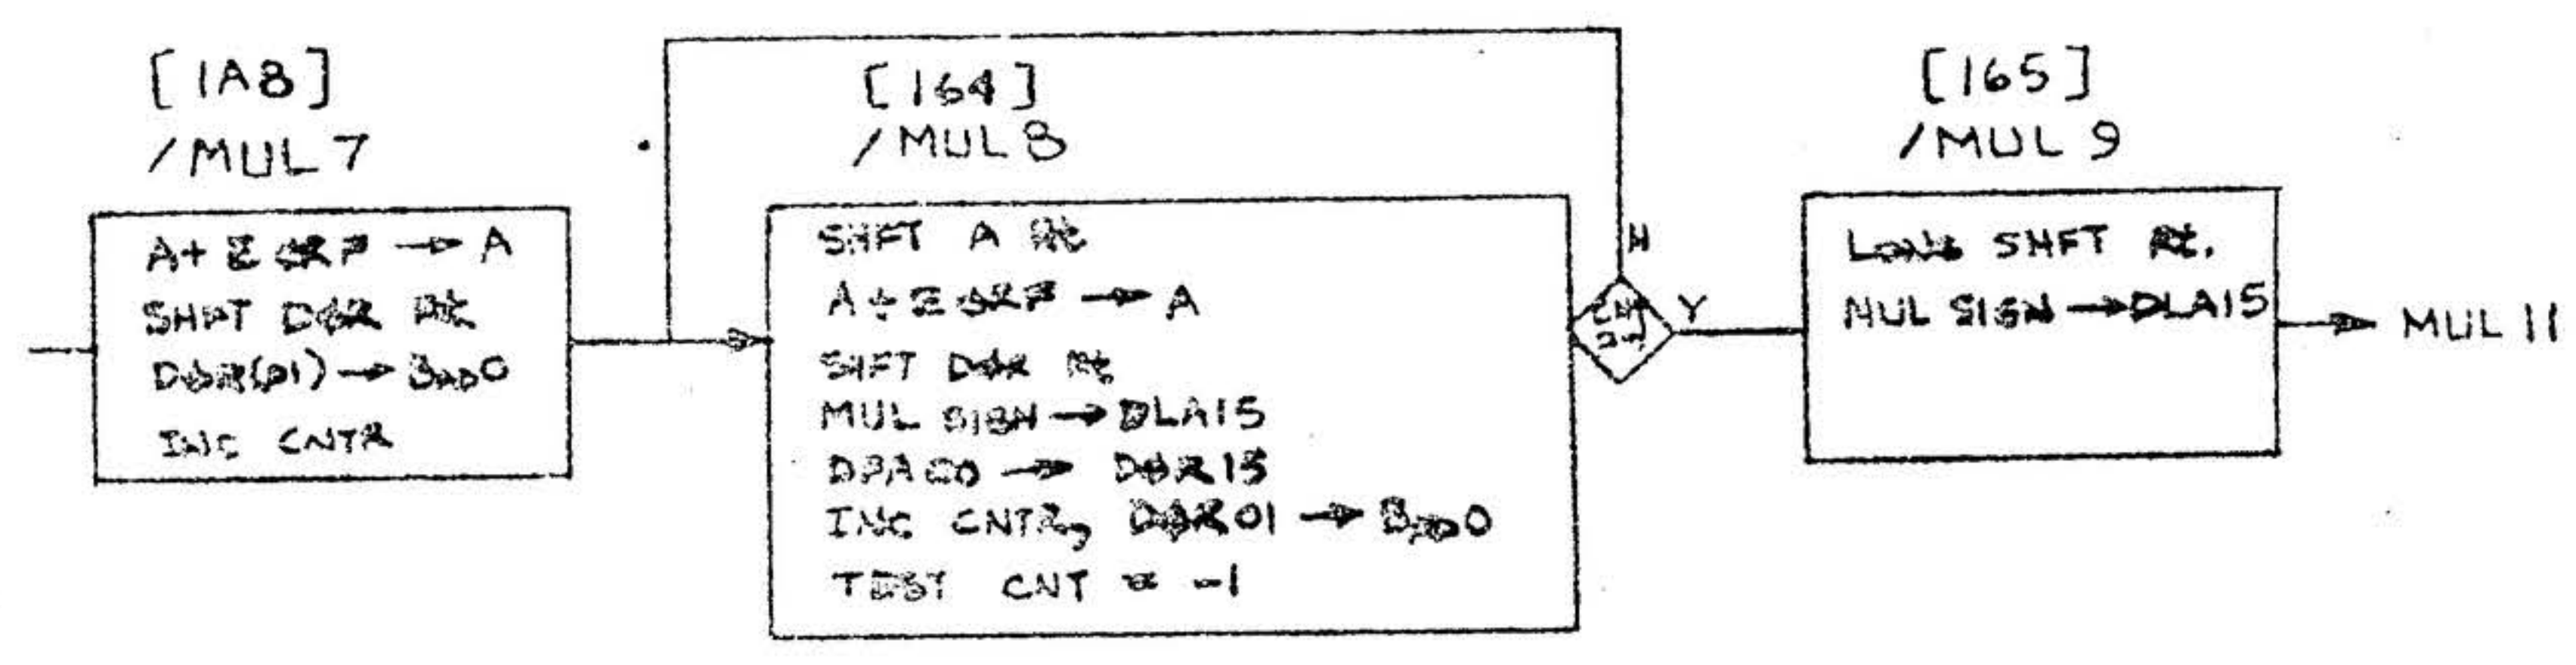 [1A8]
/MUL 7
A+ → A
SHFT DBR Rt
DBR(01) → 0
INC CNTR
[164]
/MUL 8
SHFT A Rt
A+ → A
SHFT DBR Rt
MUL SIGN → DLA15
→ DBR15
INC CNTR, DBR01 → 0
TEST CNT = -1
N
Y
[165]
/MUL 9
LONG SHFT Rt.
MUL SIGN → DLA15
MUL 11